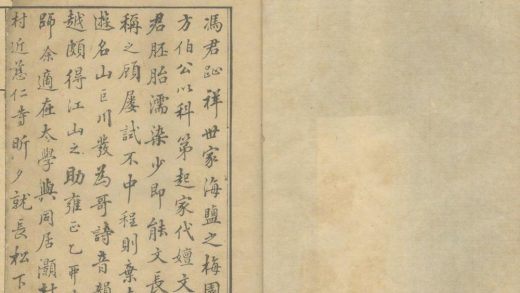 馮君趾祥世家海鹽之梅園
方伯公以科第起家代嬗文
君胚胎濡染少即能文長
稱之顧屢試不中程則棄
遊名山巨川發為哥詩音韻
越頗得江山之助雍正乙卯
師余適在太學與同居灝
村近慈仁寺昕夕就長松下